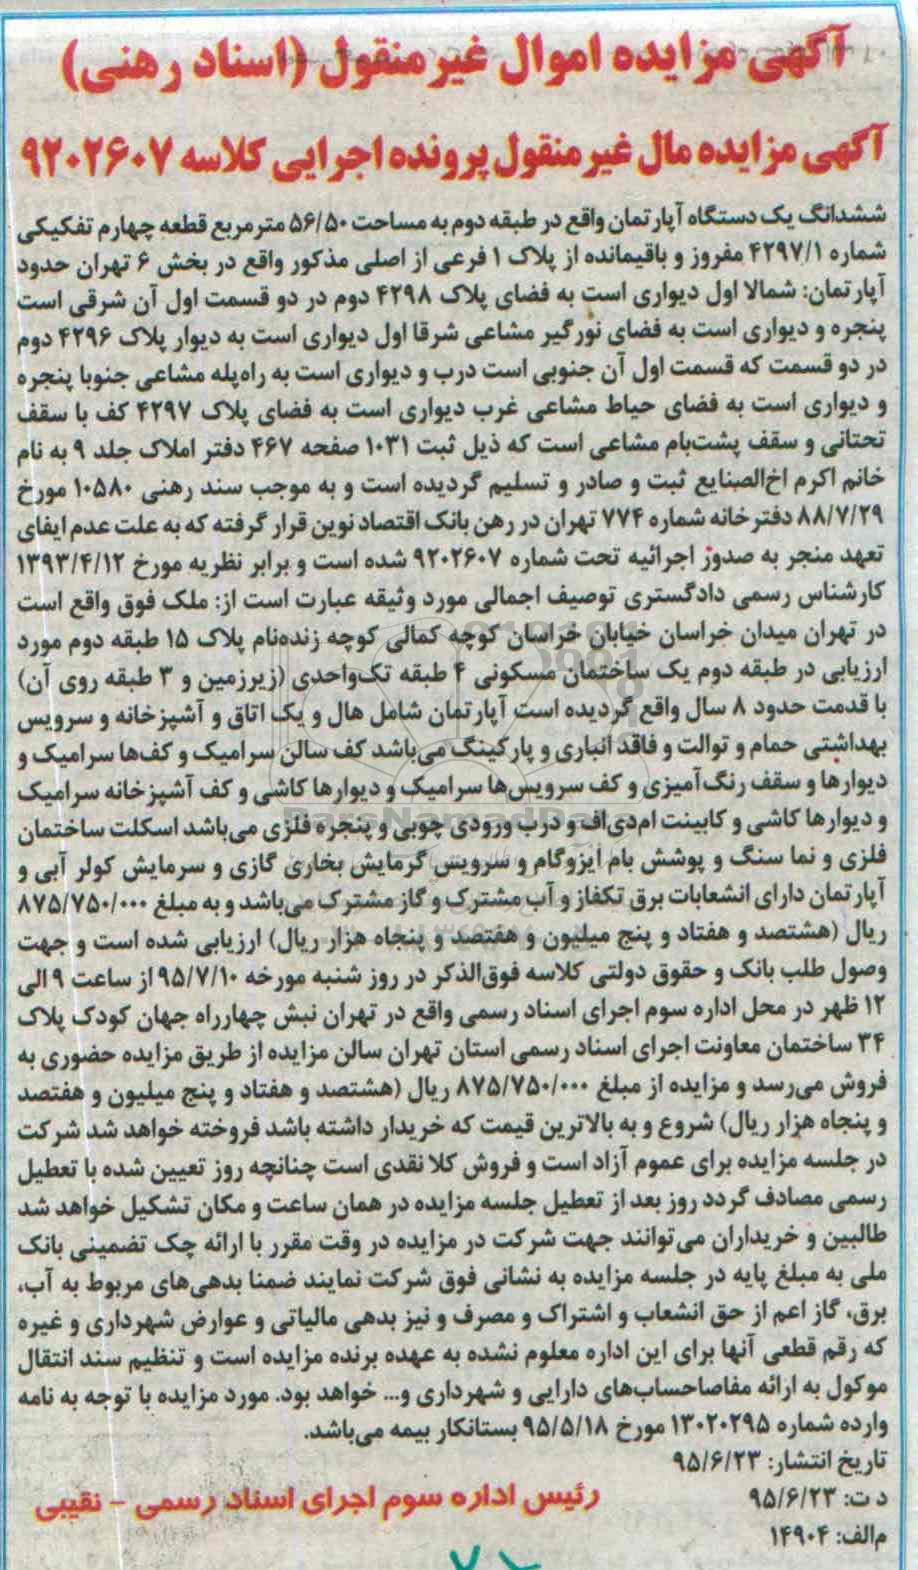 آگهی مزایده اموال غیر منقول (اسناد رهنی)
آگهی مزایده مال غیر منقول پرونده اجرایی کلاسه ۹۲۰۲۶۰۷
ششدانگ یک دستگاه آپارتمان واقع در طبقه دوم به مساحت ۵۶/۵۰ مترمربع قطعه چهارم تفکیکی
شماره ۴۲۹۷/۱ مفروز و باقیمانده از پلاک ۱ فرعی از اصلی مذکور واقع در بخش ۶ تهران حدود
آپارتمان: شمالا اول دیواری است به فضای پلاک ۴۲۹۸ دوم در دو قسمت اول آن شرقی است
پنجره و دیواری است به فضای نورگیر مشاعی شرقا اول دیواری است به دیوار پلاک ۴۲۹۶ دوم
در دو قسمت که قسمت اول آن جنوبی است درب و دیواری است به راه‌پله مشاعی جنوبا پنجره
و دیواری است به فضای حیاط مشاعی غرب دیواری است به فضای پلاک ۴۲۹۷ کف با سقف
تحتانی و سقف پشت‌بام مشاعی است که ذیل ثبت ۱۰۳۱ صفحه ۴۶۷ دفتر املاک جلد ۹ به نام
خانم اکرم اخ‌الصنایع ثبت و صادر و تسلیم گردیده است و به موجب سند رهنی ۱۰۵۸۰ مورخ
۸۸/۷/۲۹ دفترخانه شماره ۷۷۴ تهران در رهن بانک اقتصاد نوین قرار گرفته که به علت عدم ایفای
تعهد منجر به صدور اجرائیه تحت شماره ۹۲۰۲۶۰۷ شده است و برابر نظریه مورخ ۱۳۹۳/۴/۱۲
کارشناس رسمی دادگستری توصیف اجمالی مورد وثیقه عبارت است از: ملک فوق واقع است
در تهران میدان خراسان خیابان خراسان کوچه کمالی کوچه زنده‌نام پلاک ۱۵ طبقه دوم مورد
ارزیابی در طبقه دوم یک ساختمان مسکونی ۴ طبقه تک‌واحدی (زیرزمین و ۳ طبقه روی آن)
با قدمت حدود ۸ سال واقع گردیده است آپارتمان شامل هال و یک اتاق و آشپزخانه و سرویس
بهداشتی حمام و توالت و فاقد انباری و پارکینگ می‌باشد کف سالن سرامیک و کف‌ها سرامیک و
دیوارها و سقف رنگ‌آمیزی و کف سرویس‌ها سرامیک و دیوارها کاشی و کف آشپزخانه سرامیک
و دیوارها کاشی و کابینت ام‌دی‌اف و درب ورودی چوبی و پنجره فلزی می‌باشد اسکلت ساختمان
فلزی و نما سنگ و پوشش بام ایزوگام و سرویس گرمایش بخاری گازی و سرمایش کولر آبی و
آپارتمان دارای انشعابات برق تکفاز و آب مشترک و گاز مشترک می‌باشد و به مبلغ ۸۷۵/۷۵۰/۰۰۰
ریال (هشتصد و هفتاد و پنج میلیون و هفتصد و پنجاه هزار ریال) ارزیابی شده است و جهت
وصول طلب بانک و حقوق دولتی کلاسه فوق‌الذکر در روز شنبه مورخه ۹۵/۷/۱۰ از ساعت ۹ الی
۱۲ ظهر در محل اداره سوم اجرای اسناد رسمی واقع در تهران نبش چهارراه جهان کودک پلاک
۳۴ ساختمان معاونت اجرای اسناد رسمی استان تهران سالن مزایده از طریق مزایده حضوری به
فروش می‌رسد و مزایده از مبلغ ۸۷۵/۷۵۰/۰۰۰ ریال (هشتصد و هفتاد و پنج میلیون و هفتصد
و پنجاه هزار ریال) شروع و به بالاترین قیمت که خریدار داشته باشد فروخته خواهد شد شرکت
در جلسه مزایده برای عموم آزاد است و فروش کلا نقدی است چنانچه روز تعیین شده با تعطیل
رسمی مصادف گردد روز بعد از تعطیل جلسه مزایده در همان ساعت و مکان تشکیل خواهد شد
طالبین و خریداران می‌توانند جهت شرکت در مزایده در وقت مقرر با ارائه چک تضمینی بانک
ملی به مبلغ پایه در جلسه مزایده به نشانی فوق شرکت نمایند ضمنا بدهی‌های مربوط به آب،
برق، گاز اعم از حق انشعاب و اشتراک و مصرف و نیز بدهی مالیاتی و عوارض شهرداری و غیره
که رقم قطعی آنها برای این اداره معلوم نشده به عهده برنده مزایده است و تنظیم سند انتقال
موکول به ارائه مفاصاحساب‌های دارایی و شهرداری و... خواهد بود. مورد مزایده با توجه به نامه
وارده شماره ۱۳۰۲۰۲۹۵ مورخ ۹۵/۵/۱۸ بستانکار بیمه می‌باشد.
تاریخ انتشار: ۹۵/۶/۲۳
د ت: ۹۵/۶/۲۳
رئیس اداره سوم اجرای اسناد رسمی - نقیبی
م‌الف: ۱۴۹۰۴